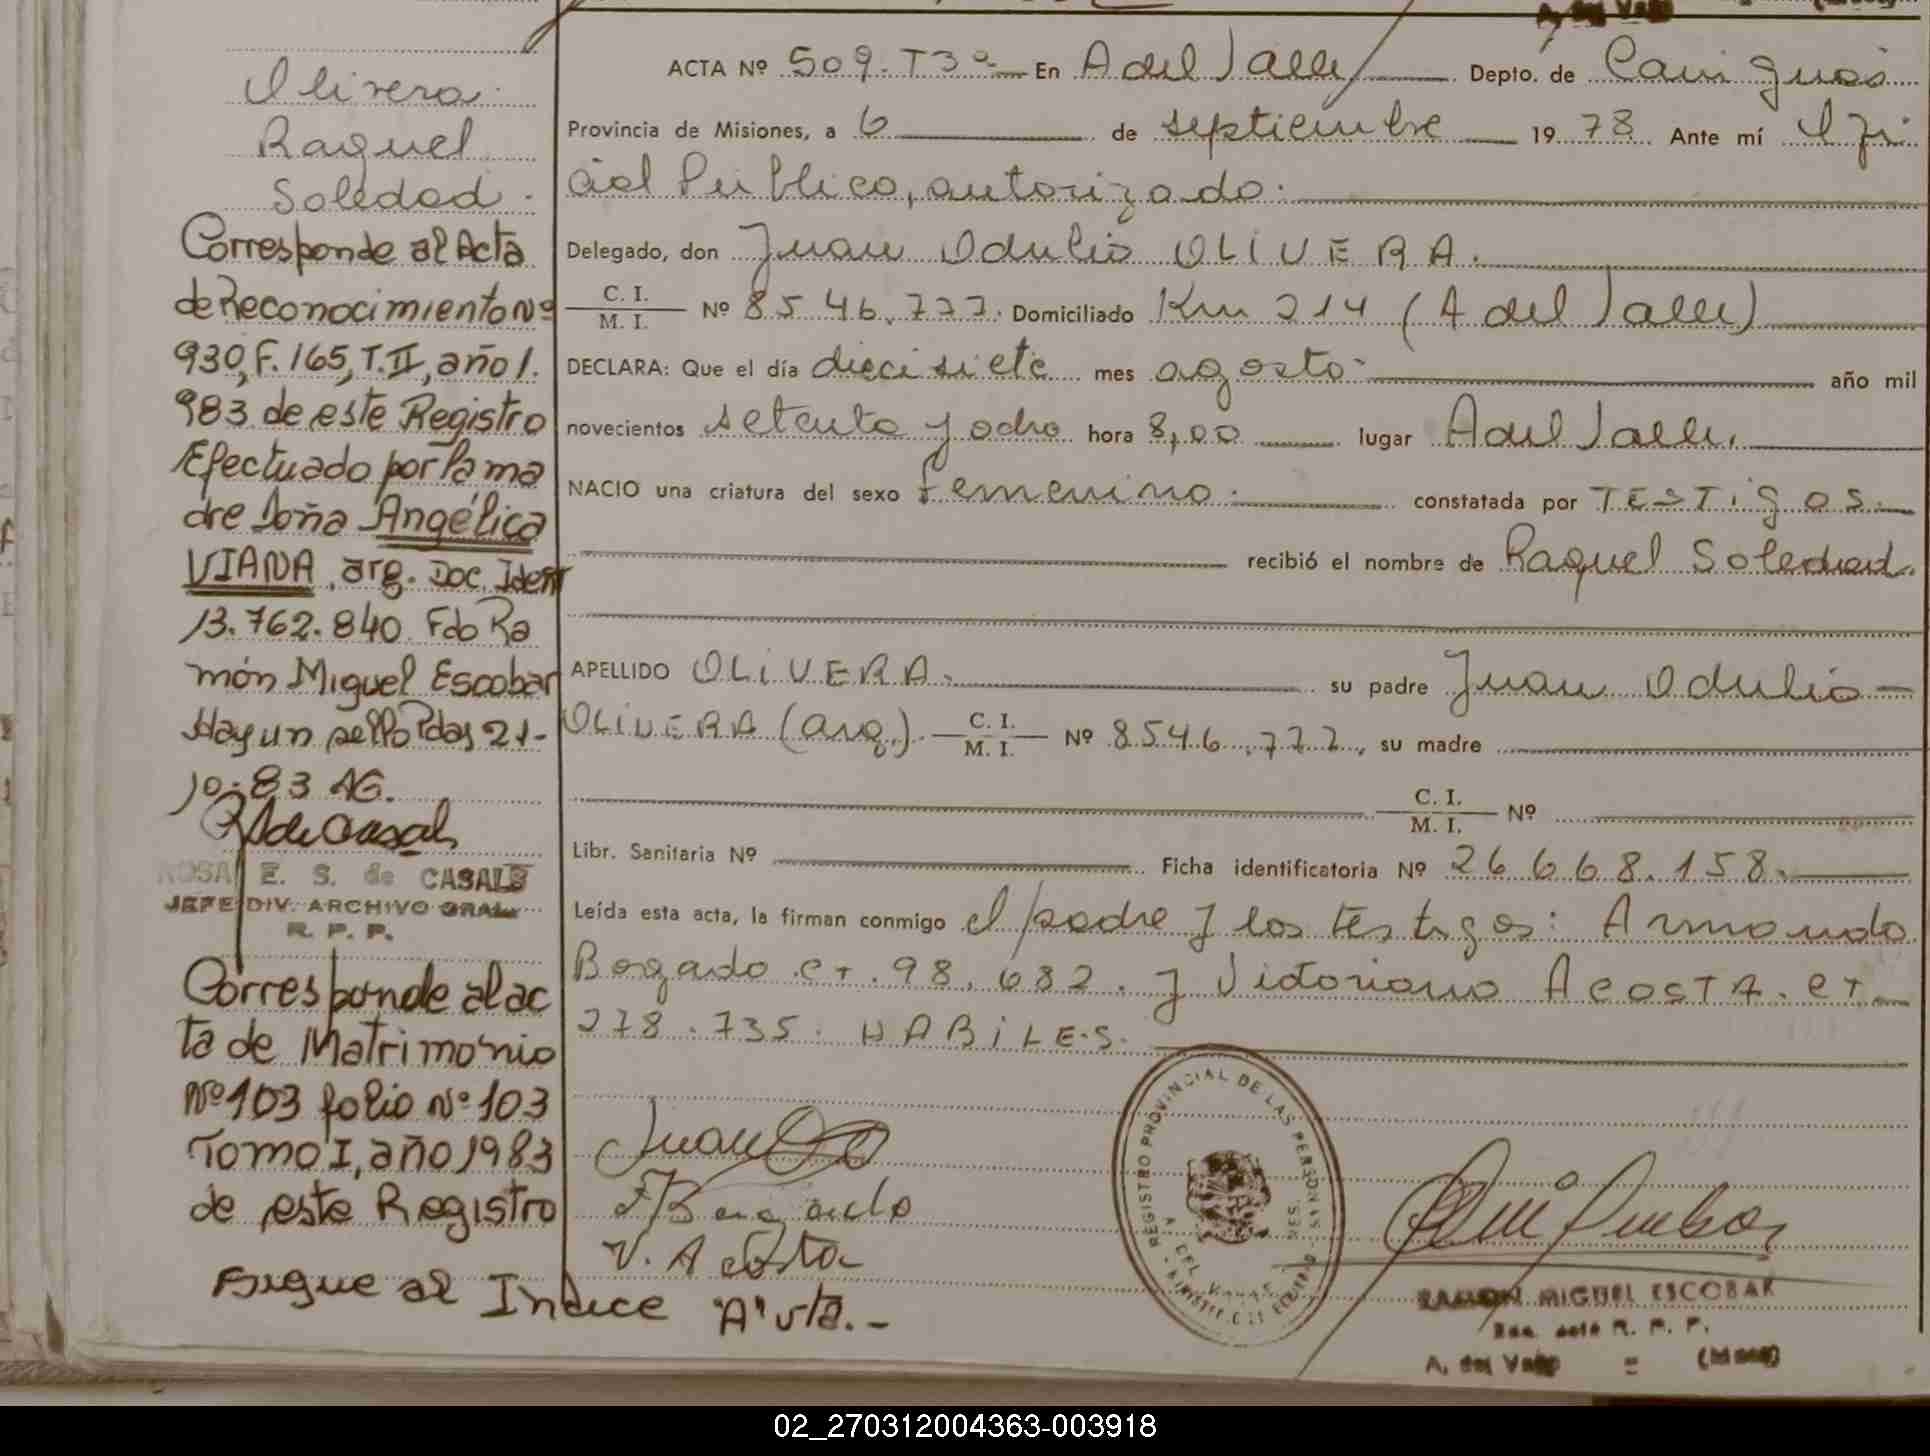 Olivera
Raquel
Soledad.
Corresponde al Acta
de Reconocimiento Nº
930, F. 165, T. II, año 1.
983 de este Registro
Efectuado por la ma
dre Doña Angélica
VIANA, arg. Doc. Ident
13.762.840 Fdo Ra
món Miguel Escobar
Hay un sello Pdas 21-
10-83 AG.
ROSA E. S. de CASALS
JEFE DIV. ARCHIVO GRAL.
R. P. P.
Corresponde al ac
ta de Matrimonio
Nº 103 folio Nº 103
Tomo I, año 1983
de este Registro
Sigue al Indice "A" vta.-
ACTA Nº 509. T3º En A del Valle Depto. de Cainguás
Provincia de Misiones, a 6 de septiembre 19 78 Ante mí Ofi
cial Público, autorizado.
Delegado, don Juan Odulio OLIVERA.
C. I. / M. I. Nº 8546.777. Domiciliado Km 214 (A del Valle)
DECLARA: Que el día diecisiete mes agosto año mil
novecientos setenta y ocho hora 8,00 lugar A del Valle.
NACIO una criatura del sexo femenino. constatada por TESTigos.
recibió el nombre de Raquel Soledad.
APELLIDO OLIVERA. su padre Juan Odulio
OLIVERA (arg.) C. I. / M. I. Nº 8546.777, su madre
C. I. / M. I. Nº
Libr. Sanitaria Nº Ficha identificatoria Nº 26668.158.
Leída esta acta, la firman conmigo el padre y los testigos: Armando
Bogado. CI. 98.682. y Victoriano ACOSTA. CI.
278.735. HABILES.
V. Acosta
REGISTRO PROVINCIAL DE LAS PERSONAS
A. DEL VALLE
RAMON MIGUEL ESCOBAR
R. P. P.
A. del Valle = (Mnes)
02_270312004363-003918